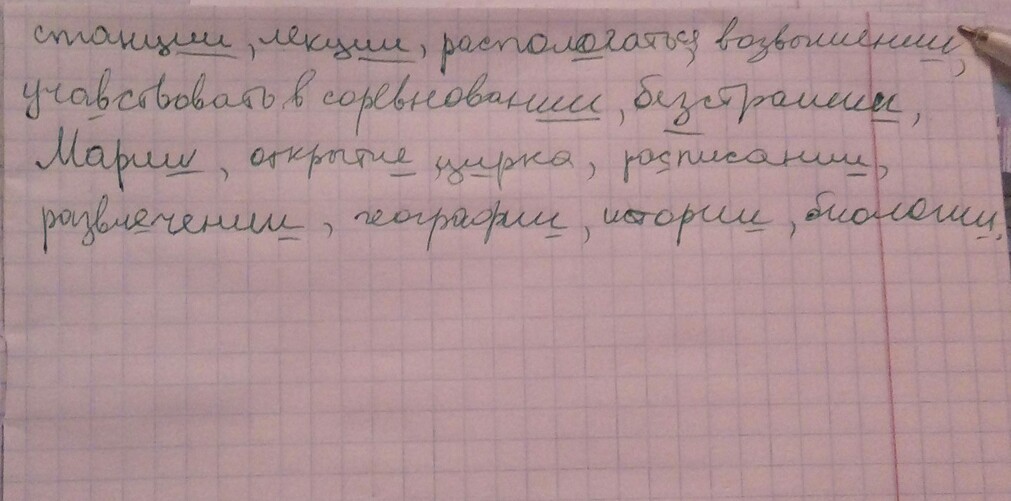 станции, лекции, распологаться возвышении,
учавствовать в соревновании, безстрашии,
Марии, открытие цирка, расписании,
развлечении, географии, истории, биологии,